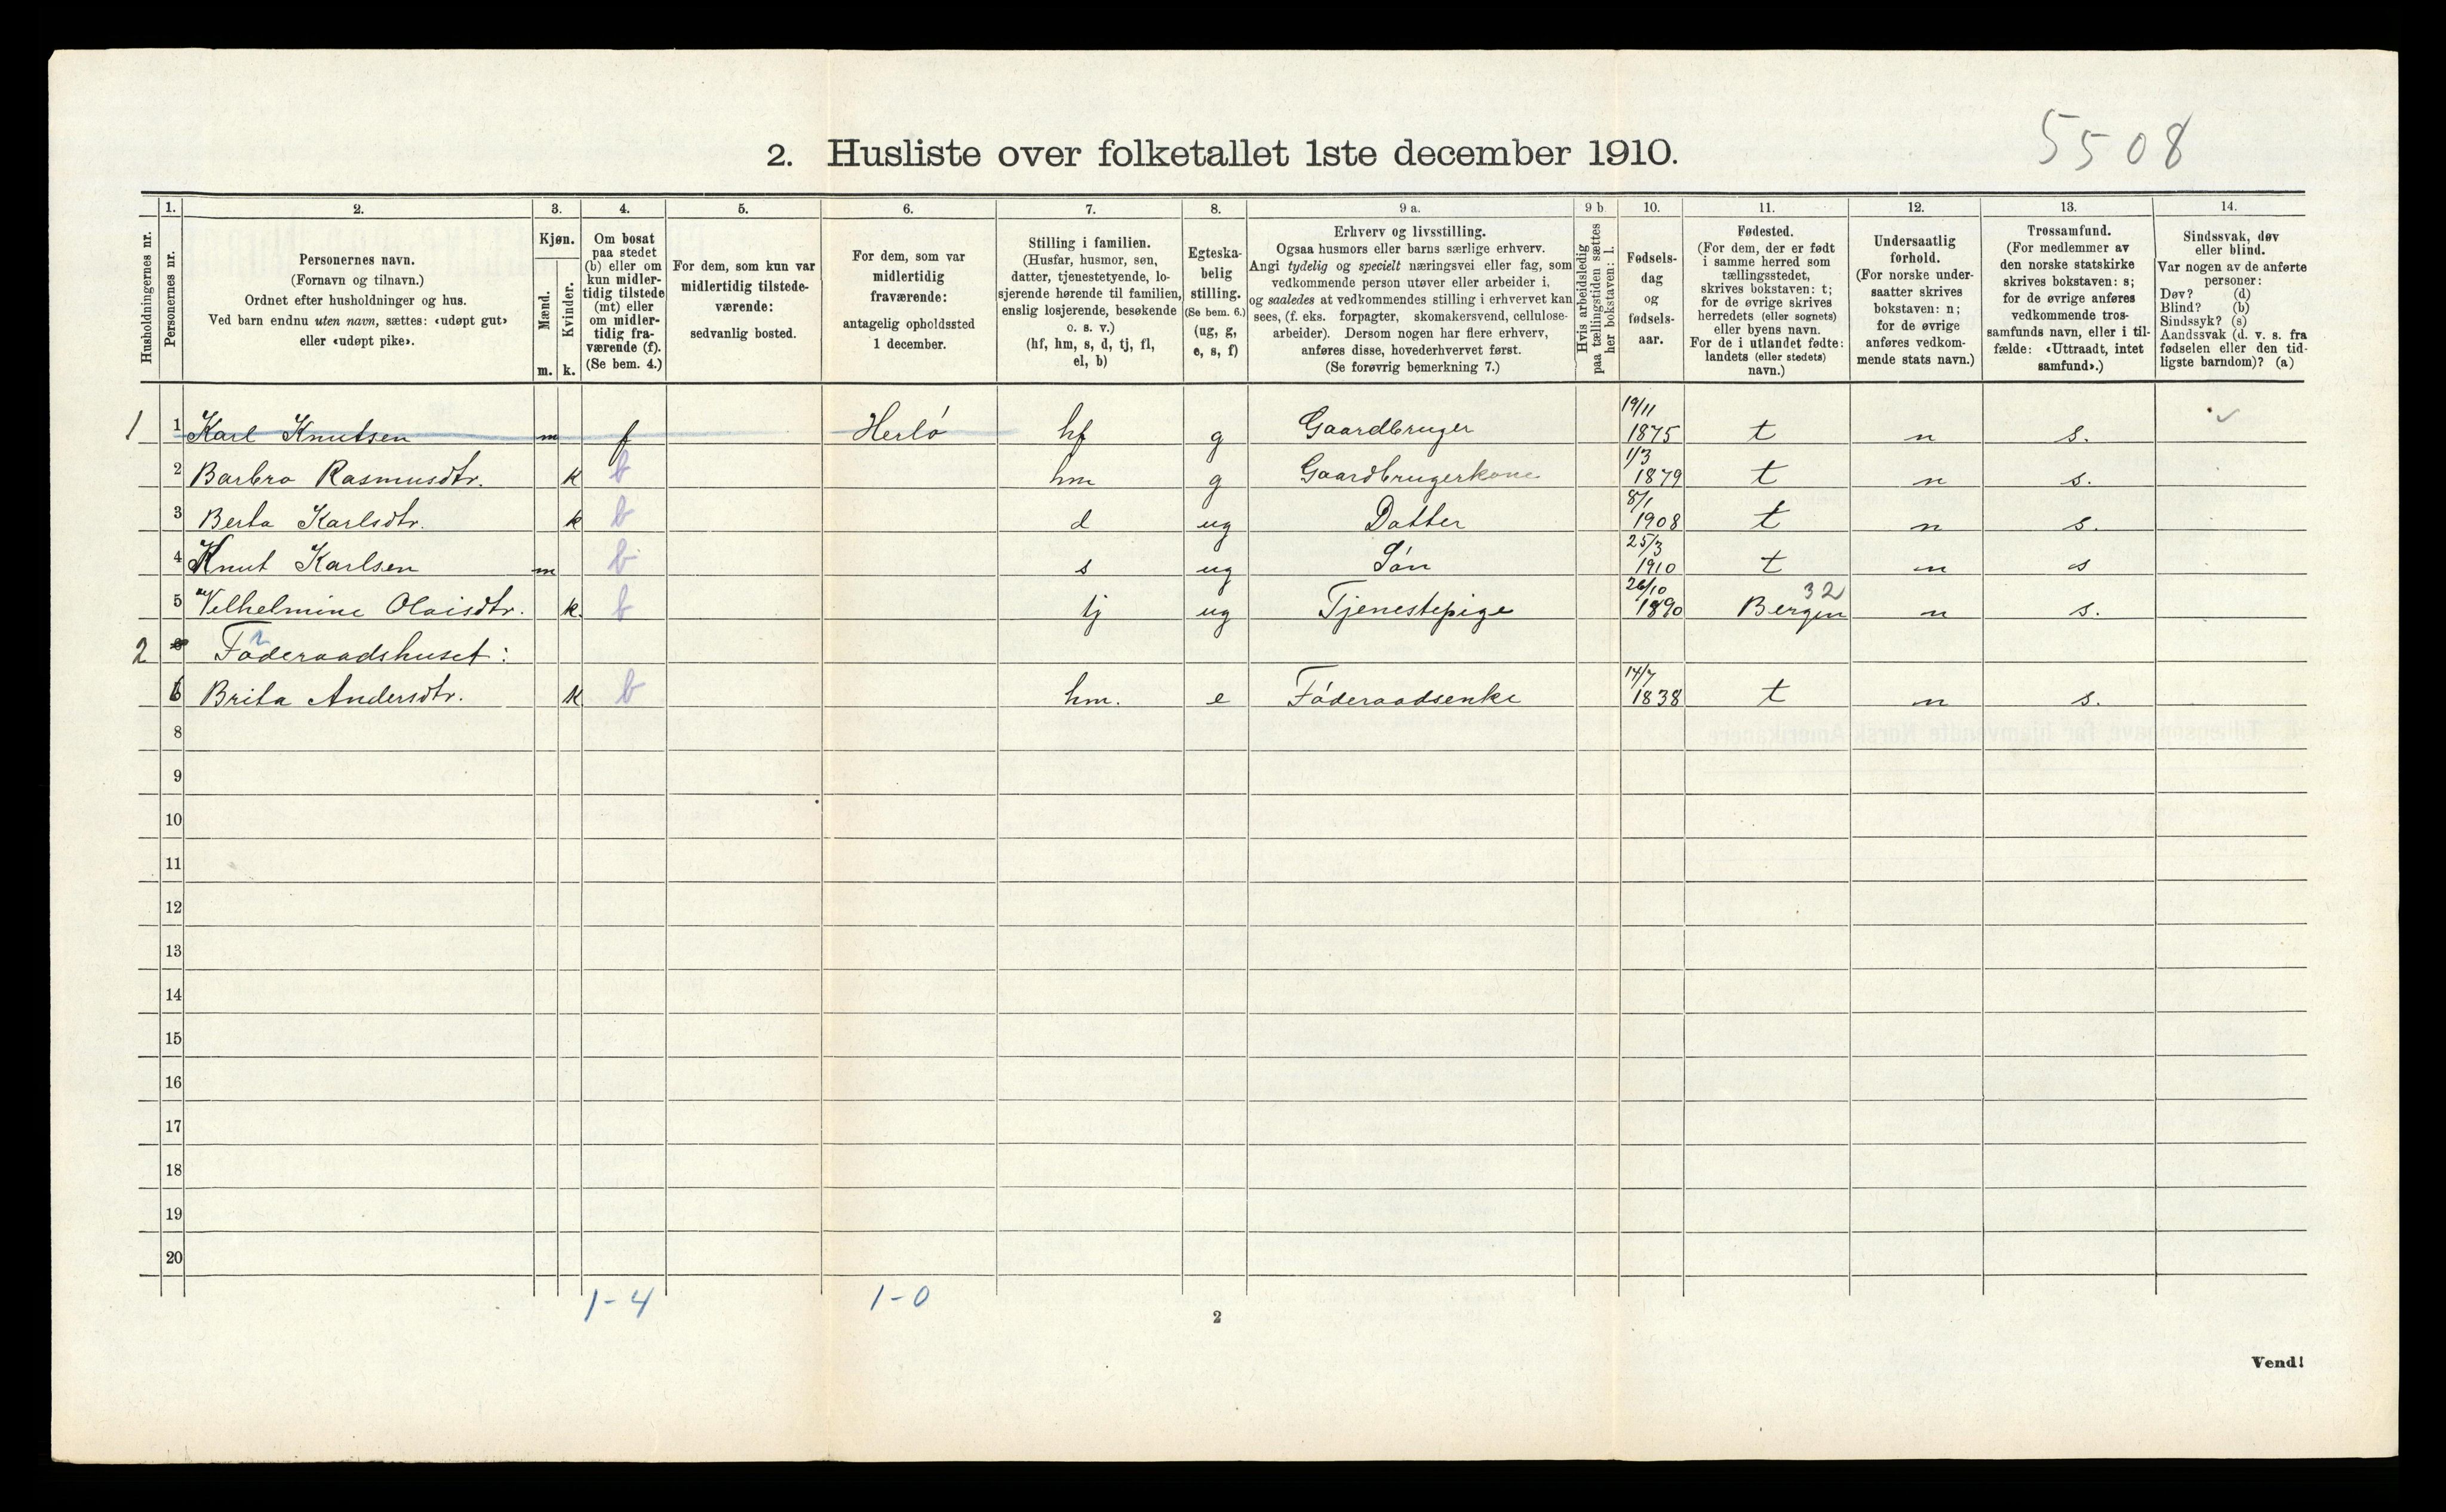 5508
2. Husliste over folketallet 1ste december 1910.
1. 2. 3. 4. 5. 6. 7. 8. 9 a. 9 b 10. 11. 12. 13. 14.
Husholdningernes nr.
Personernes nr.
Personernes navn.
(Fornavn og tilnavn.)
Ordnet efter husholdninger og hus.
Ved barn endnu uten navn, sættes: «udøpt gut»
eller «udøpt pike».
Kjøn.
Mænd.
Kvinder.
m. k.
Om bosat
paa stedet
(b) eller om
kun midler-
tidig tilstede
(mt) eller
om midler-
tidig fra-
værende (f).
(Se bem. 4.)
For dem, som kun var
midlertidig tilstede-
værende:
sedvanlig bosted.
For dem, som var
midlertidig
fraværende:
antagelig opholdssted
1 december.
Stilling i familien.
(Husfar, husmor, søn,
datter, tjenestetyende, lo-
sjerende hørende til familien,
enslig losjerende, besøkende
o. s. v.)
(hf, hm, s, d, tj, fl,
el, b)
Egteska-
belig
stilling.
(Se bem. 6.)
(ug, g,
e, s, f)
Erhverv og livsstilling.
Ogsaa husmors eller barns særlige erhverv.
Angi tydelig og specielt næringsvei eller fag, som
vedkommende person utøver eller arbeider i,
og saaledes at vedkommendes stilling i erhvervet kan
sees, (f. eks. forpagter, skomakersvend, cellulose-
arbeider). Dersom nogen har flere erhverv,
anføres disse, hovederhvervet først.
(Se forøvrig bemerkning 7.)
Hvis arbeidsledig
paa tællingstiden sættes
her bokstaven: l.
Fødsels-
dag
og
fødsels-
aar.
Fødested.
(For dem, der er født
i samme herred som
tællingsstedet,
skrives bokstaven: t;
for de øvrige skrives
herredets (eller sognets)
eller byens navn.
For de i utlandet fødte:
landets (eller stedets)
navn.)
Undersaatlig
forhold.
(For norske under-
saatter skrives
bokstaven: n;
for de øvrige
anføres vedkom-
mende stats navn.)
Trossamfund.
(For medlemmer av
den norske statskirke
skrives bokstaven: s;
for de øvrige anføres
vedkommende tros-
samfunds navn, eller i til-
fælde: «Uttraadt, intet
samfund».)
Sindssvak, døv
eller blind.
Var nogen av de anførte
personer:
Døv? (d)
Blind? (b)
Sindssyk? (s)
Aandssvak (d. v. s. fra
fødselen eller den tid-
ligste barndom)? (a)
1 1 Karl Knutsen m f Herlö hf g Gaardbruger 19/11 1875 t n s.
2 Barbro Rasmusdtr. k b hm g Gaardbrugerkone 1/3 1879 t n s.
3 Berta Karlsdtr. k b d ug Datter 8/1 1908 t n s.
4 Knut Karlsen m b s ug Sön 25/3 1910 t n s
5 Velhelmine Olaisdtr. k. b tj ug Tjenestepige 26/10 1890 Bergen 32 n s.
2 Föderaadshuset:
6 Brita Andersdtr. k b hm. e Föderaadsenke 14/7 1838 t n s.
8
9
10
11
12
13
14
15
16
17
18
19
20
1-4 1-0
2
Vend!